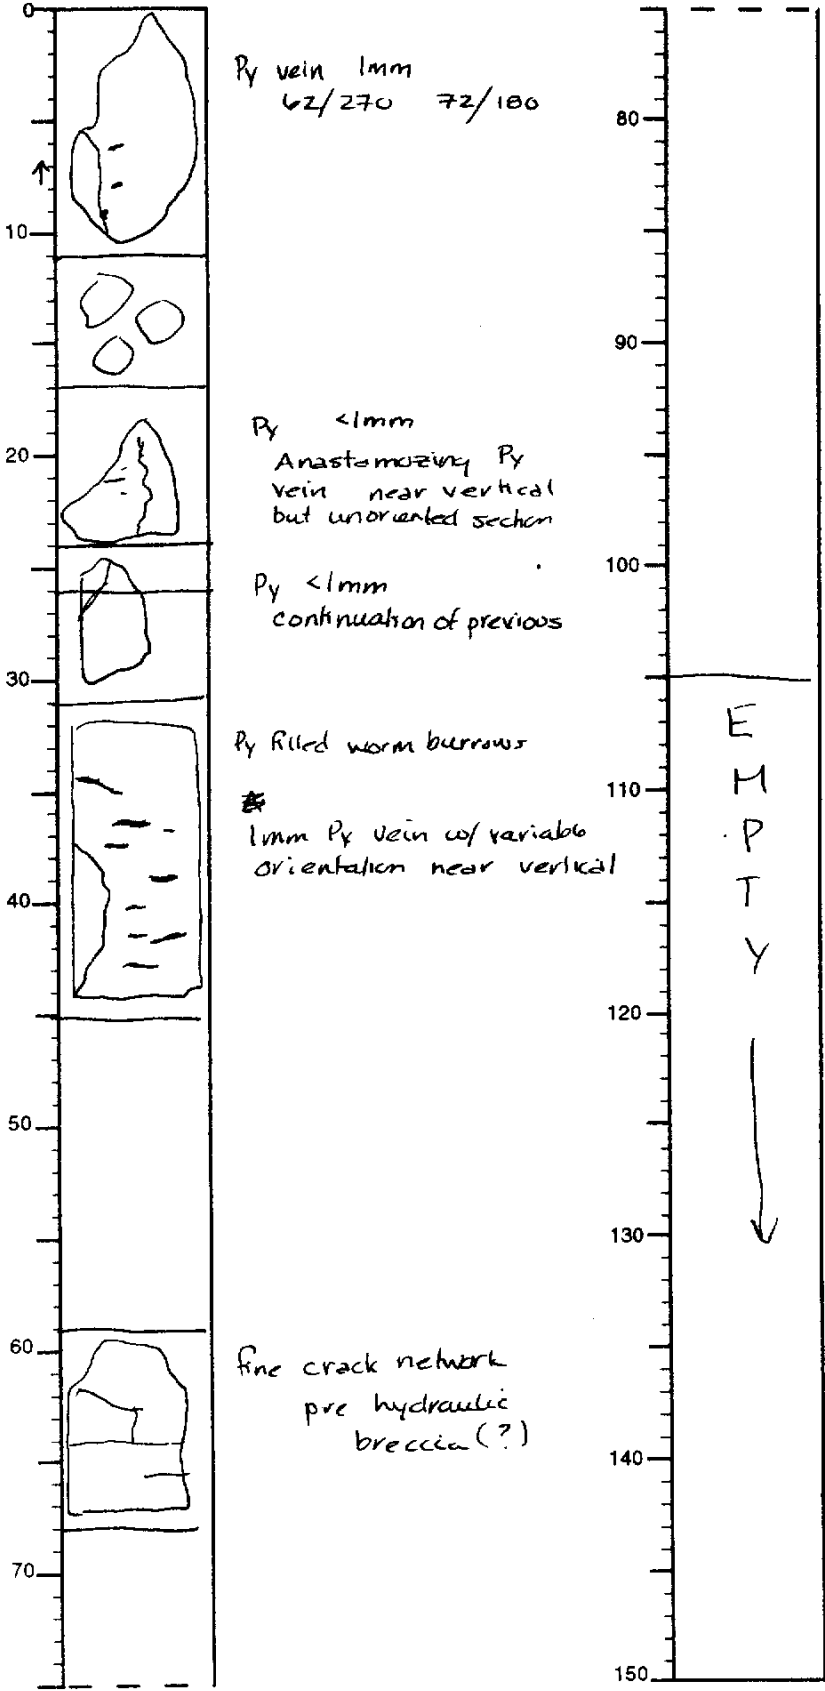 0
Py vein 1mm
62/270 72/180
10
20
Py <1mm
Anastomozing Py
vein near vertical
but unoriented section
Py <1mm
continuation of previous
30
Py filled worm burrows
1mm Py vein w/ variable
orientation near vertical
40
50
60
fine crack network
pre hydraulic
breccia (?)
70
80
90
100
E
M
P
T
Y
110
120
130
140
150